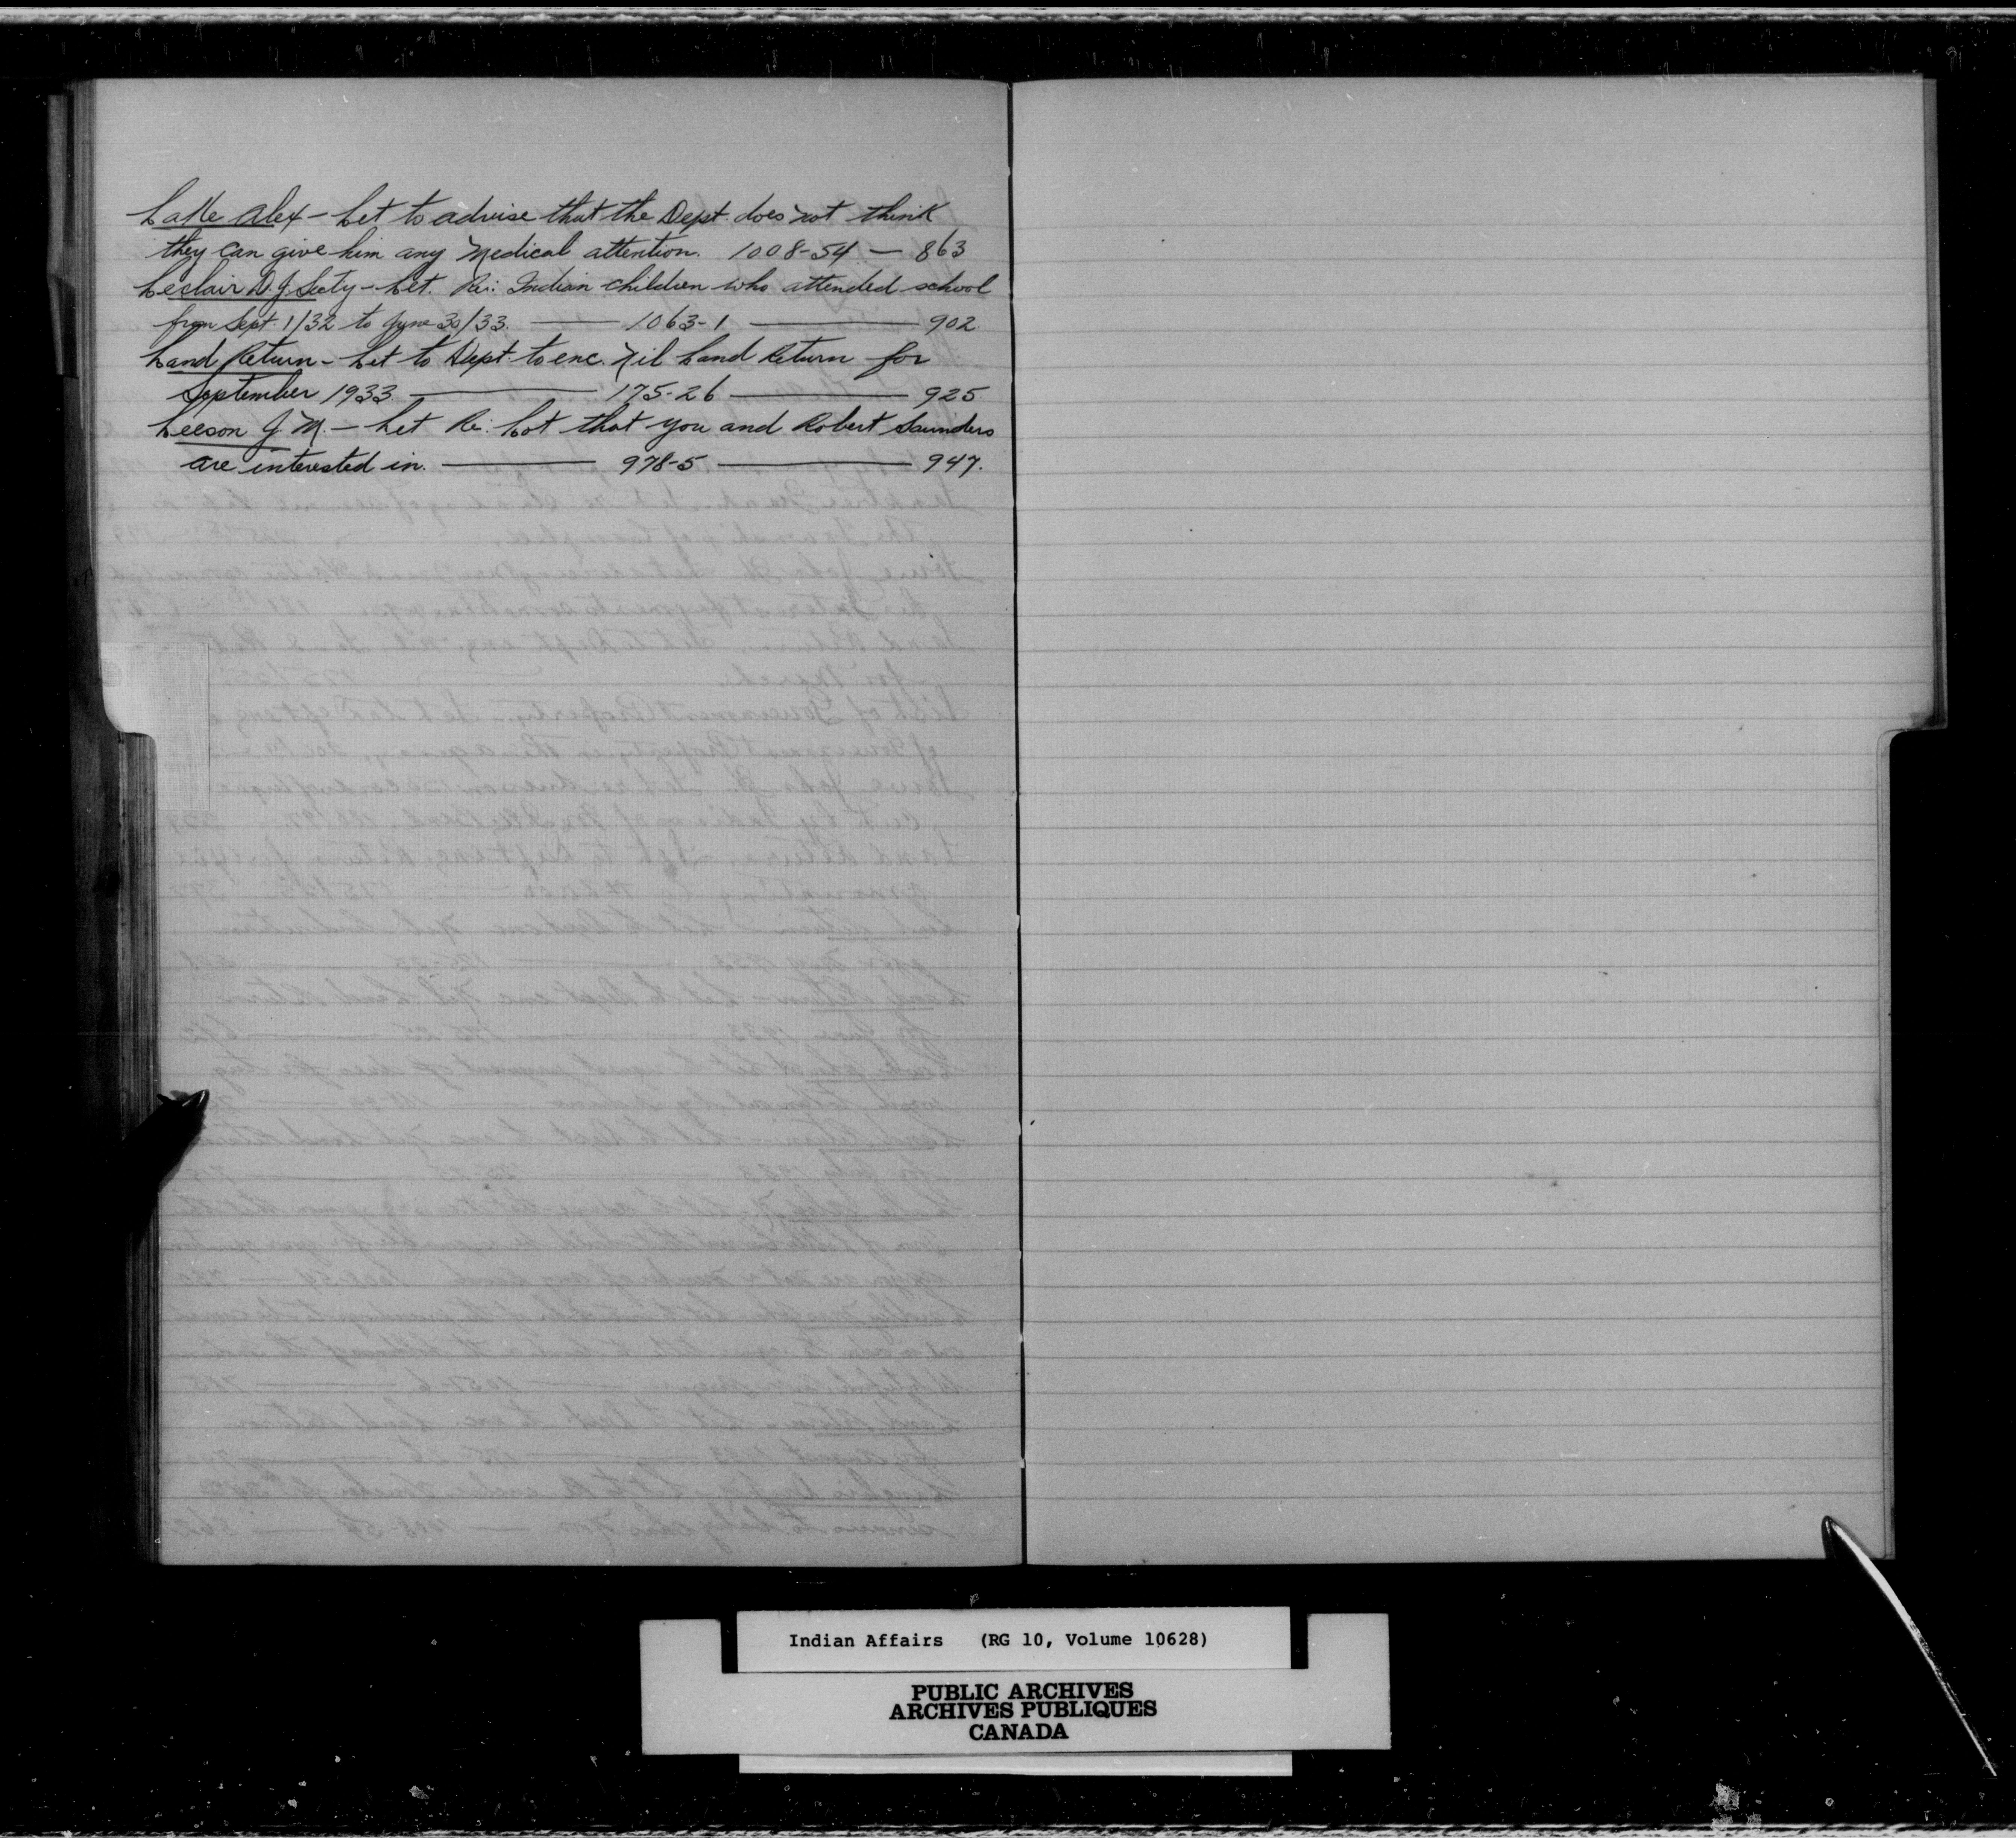 Lake Alex - Let to advise that the Dept. does not think
they can give him any Medical attention. 1008-54 - 863
Leclair D.J. Secty - Let. Re: Indian children who attended school
from Sept. 1/32 to June 30/33. — 1063-1 — 902.
Land Return - Let to Dept. to enc. Nil Land Return for
September 1933. — 175-26 — 925
Leeson J.M. - Let Re: Lot that you and Robert Saunders
are interested in. — 978-5 — 947.
Indian Affairs (RG 10, Volume 10628)
PUBLIC ARCHIVES
ARCHIVES PUBLIQUES
CANADA